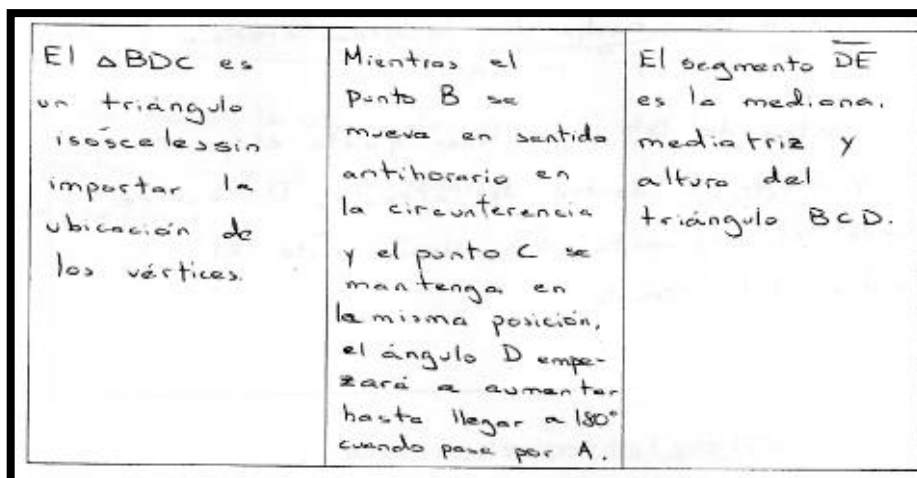 El △BDC es
un triángulo
isósceles sin
importar la
ubicación de
los vértices.
Mientras el
punto B se
mueva en sentido
antihorario en
la circunferencia
y el punto C se
mantenga en
la misma posición,
el ángulo D empe-
zará a aumentar
hasta llegar a 180°
cuando pase por A.
El segmento D̅E̅
es la mediana,
mediatriz y
altura del
triángulo BCD.